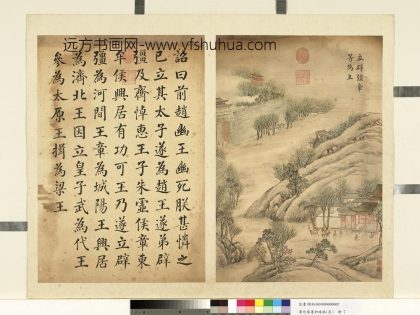 远方书画网-www.yfshuhua.com
立辟彊章
等為王
詔曰前趙幽王幽死朕甚憐之
已立其太子遂為趙王遂弟辟
彊及齊悼惠王子朱虛侯章東
牟侯興居有功可王乃遂立辟
彊為河間王章為城陽王興居
為濟北王因立皇子武為代王
參為太原王揖為梁王